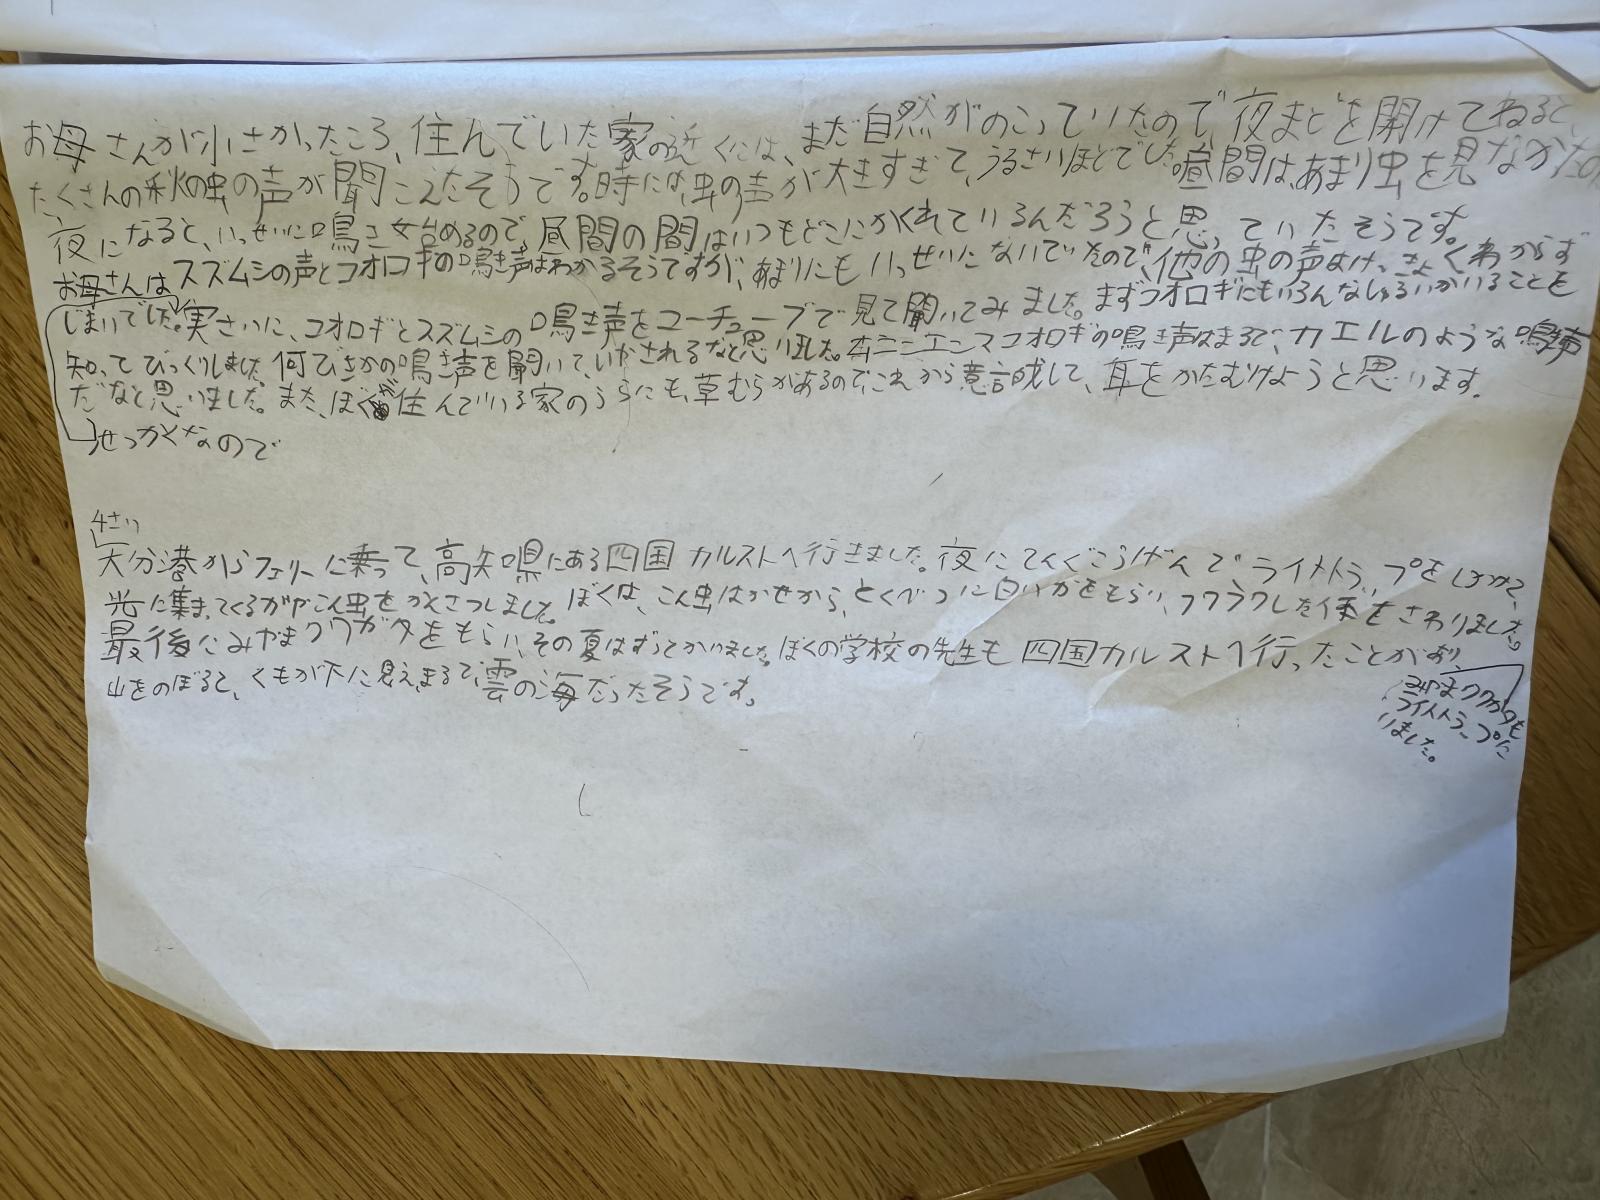 お母さんが小さかったころ、住んでいた家の近くには、まだ自然がのこっていたので、夜まどを開けてねると、
たくさんの秋の虫の声が聞こえたそうです。時には、虫の声が大きすぎて、うるさいほどでした。昼間は、あまり虫を見なかったの
夜になると、いっせいに鳴き始めるので、昼間の間はいつもどこにかくれているんだろうと思っていたそうです。
お母さんはスズムシの声とコオロギの鳴き声はわかるそうですが、あまりにもいっせいにないていたので、他の虫の声はけっきょくわからず
じまいでした。実さいに、コオロギとスズムシの鳴き声をユーチューブで見て聞いてみました。まずコオロギにもいろんなしゅるいがいることを
知ってびっくりしました。何びきかの鳴き声を聞いて、いやされるなと思いました。タンニンエンマコオロギの鳴き声はまるで、カエルのような鳴き声
だなと思いました。また、ぼくが住んでいる家のうらにも、草むらがあるので、これから意識して、耳をかたむけようと思います。
せっかくなので
4さい
大分港からフェリーに乗って、高知県にある四国カルストへ行きました。夜にてんぐこうげんでライトトラップをしかけて、
光に集まってくるがやこん虫をかんさつしました。ぼくは、こん虫はかせから、とくべつに白いがをもらい、フワフワした体をさわりました。
最後にみやまクワガタをもらい、その夏はずっとかいました。ぼくの学校の先生も四国カルストへ行ったことがあり、
みやまクワガタも
ライトトラップに
いました。
山をのぼると、くもが下に見え、まるで、雲の海だったそうです。